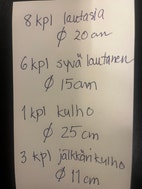 8 kpl lautasia
Ø 20 cm
6 kpl syvä lautanen
Ø 15cm
1 kpl kulho
Ø 25 cm
3 kpl jälkkärikulho
Ø 11 cm